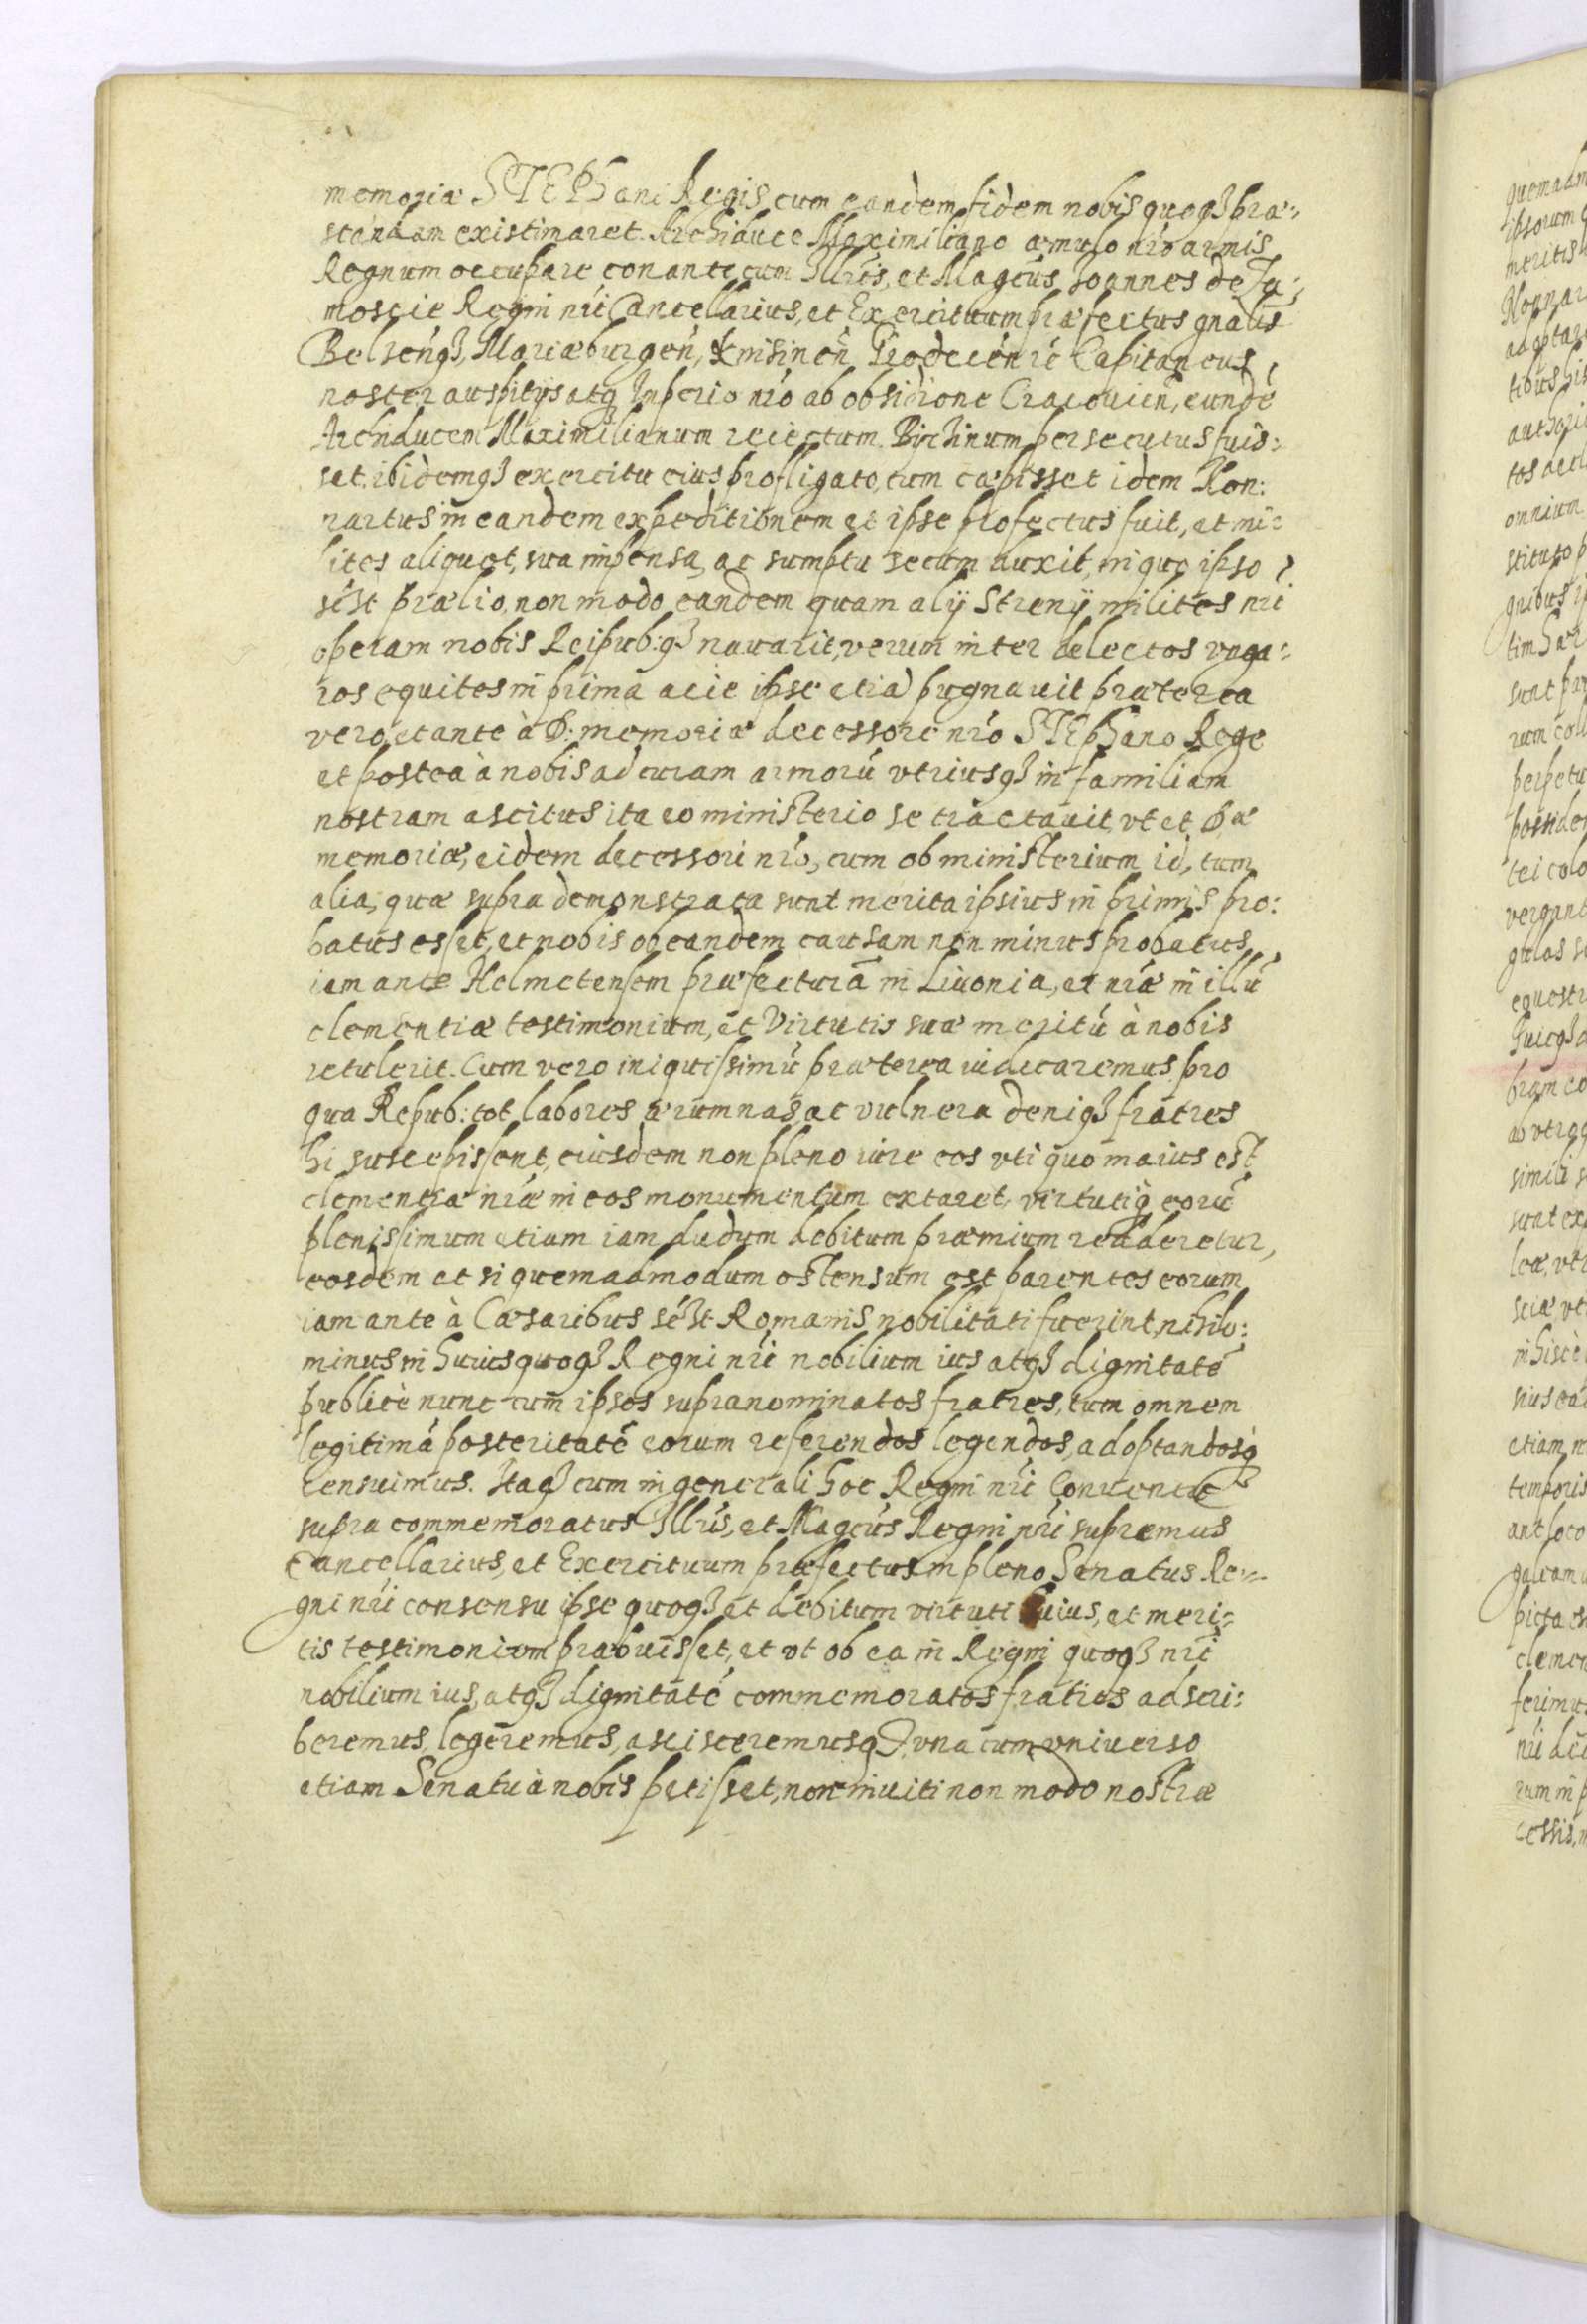 memoriæ STEPhani Regis cum eandem fidem nobis quoq3 præ:
standam existimaret. Archiduce Maximiliano æmulo nr̃o armis
Regnum occupare conante, cum Illr̃is, et Magcus Joannes de Za:
moscie Regni nr̃i Cancellarius, et Exercituum præfectus gnalis
Belzeñq3, Mariæburgeñ, Kmisineñ Grodeceñ rc̃ Capitaneus
noster auspitijs atq3 Imperio nr̃o ab obsidione Cracovieñ, eundẽ
Archiducem Maximilianum reiectum Bijchinum persecutus fuis:
set, ibidemq3 exercitu eius profligato, eum cæpisset idem Kon:
nartus in eandem expeditionem et ipse profectus fuit, et mi:
lites aliquot, sua impensa, ac sumptu secum duxit, in quo ipso
prælio, non modo eandem quam alij Strenij milites nr̃i
operam nobis Reipub:q3 nauarit, verum inter delectos vnga:
ros equites in prima acie ipse etiã pugnauit præterea
vero, et ante à D: memoriæ decessore nr̃o STEPhano Rege
et postea à nobis ad curam armorũ vtriusq3 in familiam
nostram ascitus ita eo ministerio se tractauit, vt et D. æ
memoriæ, eidem decessori nr̃o, cum ob ministerium id, tum
alia, quæ supra demonstrata sunt merita ipsius in primis pro:
batus esset, et nobis ob eandem causam non minus probatus
iam ante Helmetensem præfecturã in Liuonia, et nr̃æ in illũ
clementiæ testimonium, et Virtutis suæ meritũ à nobis
retulerit. Cum vero iniquissimũ præterea iudicaremus, pro
qua Repub: tot labores ærumnas ac vulnera deniq3 fratres
hi suscepissent, eiusdem non pleno iure eos vti quo maius est
clementiæ nr̃æ in eos monumentum extaret, virtutiq3 eorũ
plenissimum etiam iam dudum debitum præmium redderetur,
eosdem et si quemadmodum ostensum est parentes eorum
iam ante à Cæsaribus Romanis nobilitati fuerint, nihilo:
minus in huius quoq3 Regni nr̃i nobilium ius atq3 dignitatẽ
publicè nunc cum ipsos supranominatos fratres, tum omnem
legitimã posteritatẽ eorum referendos legendos, adoptandosq3
censuimus. Itaq3 cum in generali hoc Regni nr̃i Conuentu
supra commemoratus Illr̃is, et Magcus Regni nr̃i supremus
Cancellarius, et Exercituum præfectus in pleno Senatus Re:
gni nr̃i consensu ipse quoq3 et debitum virtuti huius, et meri:
tis testimonium præbuisset, et vt ob ea in Regni quoq3 nr̃i
nobilium ius, atq3 dignitatẽ commemoratos fratres adscri:
beremus, legeremus, ascisceremusq3, vna cum vniuerso
etiam Senatu à nobis petisset, non inuiti non modo nostræ